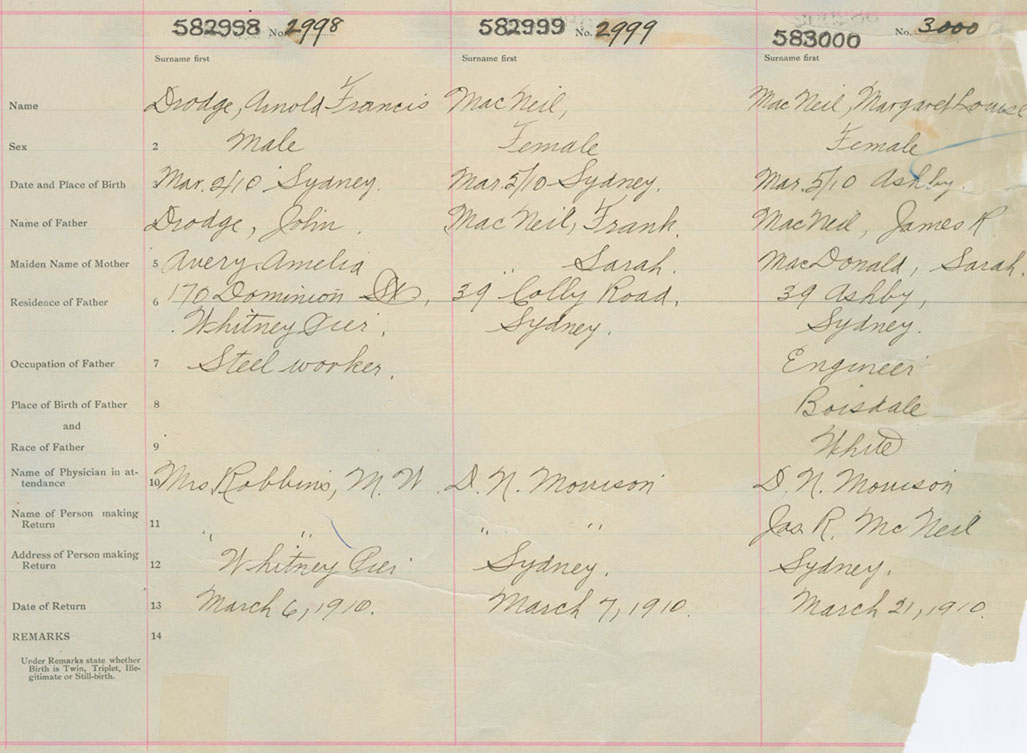 582998 No. 2998 582999 No. 2999 583000 No. 3000
Surname first Surname first Surname first
Name Drodge, Arnold Francis MacNeil, MacNeil, Margaret Louise
Sex 2 Male Female Female
Date and Place of Birth 3 Mar. /10 Sydney. Mar. 5/10 Sydney. Mar. 5/10 Ashby.
Name of Father Drodge, John. MacNeil, Frank. MacNeil, James R
Maiden Name of Mother 5 Avery, Amelia " Sarah. MacDonald, Sarah.
Residence of Father 6 170 Dominion St, 39 Colly Road, 39 Ashby,
Whitney Pier, Sydney. Sydney.
Occupation of Father 7 Steel worker. Engineer
Place of Birth of Father 8 Boisdale
and
Race of Father 9 White
Name of Physician in at-
tendance 10 Mrs Robbins, M. W. D. N. Morrison D. N. Morrison
Name of Person making
Return 11 " " " " Jas R. McNeil
Address of Person making
Return 12 Whitney Pier Sydney. Sydney.
Date of Return 13 March 6, 1910. March 7, 1910. March 21, 1910.
REMARKS 14
Under Remarks state whether
Birth is Twin, Triplet, Ille-
gitimate or Still-birth.